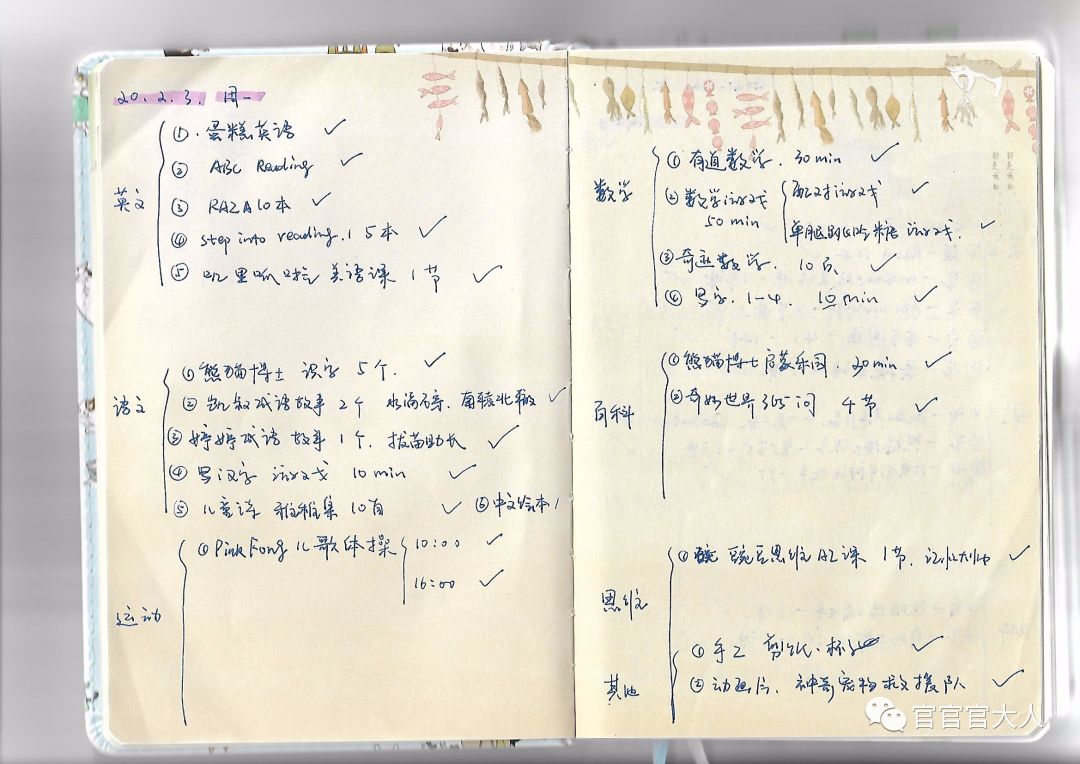 20.2.3. 周一
英文
① 蛋糕英语 ✓
② ABC Reading ✓
③ RAZ A 10本 ✓
④ step into reading.1 5本 ✓
⑤ 叽里呱啦 英语课 1节 ✓
语文
① 熊猫博士 识字 5个. ✓
② 凯叔成语故事 2个 水滴石穿、南辕北辙 ✓
③ 婷婷成语故事 1个. 拔苗助长 ✓
④ 写汉字 游戏 10min ✓
⑤ 儿童诗 10首 ✓ ⑥ 中文绘本1
运动
① PinkFong 儿歌体操 10:00 ✓
16:00 ✓
数学
① 有道数学. 30min ✓
② 数学游戏 50min
配对游戏 ✓
单腿跳吃糖游戏. ✓
③ 奇迹数学. 10页 ✓
④ 写字. 1-4. 10min ✓
百科
① 熊猫博士启蒙乐园. 30min ✓
② 奇妙世界365问 4节 ✓
思维
① 豌豆思维AI课 1节. ✓
其他
① 手工 剪纸. ✓
② 动画片. 神奇宠物救援队 ✓
都是我的.
都是我的.
官官官大人